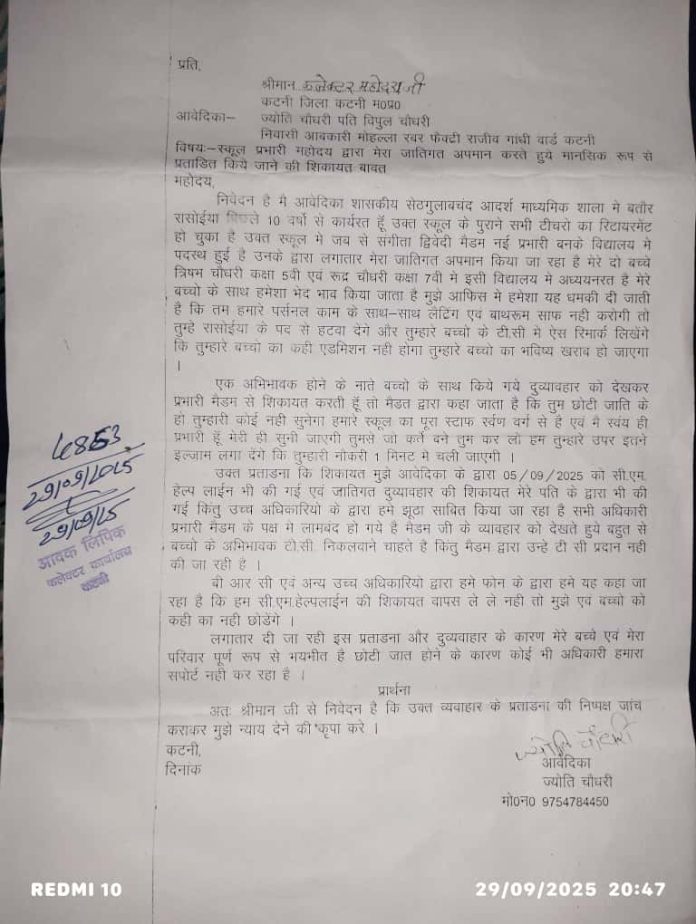 प्रति,
श्रीमान कलेक्टर महोदय जी
कटनी जिला कटनी म०प्र०
आवेदिका:– ज्योति चौधरी पति विपुल चौधरी
निवासी आबकारी मोहल्ला रबर फेक्ट्री राजीव गांधी वार्ड कटनी
विषयः–स्कूल प्रभारी महोदय द्वारा मेरा जातिगत अपमान करते हुये मानसिक रूप से
प्रताडित किये जाने की शिकायत बावत
महोदय,
निवेदन है मै आवेदिका शासकीय सेठगुलाबचंद आदर्श माध्यमिक शाला मे बतौर
रासोईया पिछले 10 वर्षो से कार्यरत हूँ उक्त स्कूल के पुराने सभी टीचरो का रिटायरमेंट
हो चुका है उक्त स्कूल मे जब से संगीता द्विवेदी मैडम नई प्रभारी बनके विद्यालय मे
पदस्थ हुई है उनके द्वारा लगातार मेरा जातिगत अपमान किया जा रहा है मेरे दो बच्चे
त्रिषभ चौधरी कक्षा 5वी एवं रूद्र चौधरी कक्षा 7वी मे इसी विद्यालय मे अध्ययनरत है मेरे
बच्चो के साथ हमेशा भेद भाव किया जाता है मुझे आफिस मे हमेशा यह धमकी दी जाती
है कि तम हमारे पर्सनल काम के साथ–साथ लेटिंग एवं बाथरूम साफ नही करोगी तो
तुम्हे रासोईया के पद से हटवा देगे और तुम्हारे बच्चो के टी.सी मे ऐस रिमार्क लिखेंगे
कि तुम्हारे बच्चो का कही एडमिशन नही होगा तुम्हारे बच्चो का भविष्य खराब हो जाएगा
।
एक अभिभावक होने के नाते बच्चो के साथ किये गये दुव्यावहार को देखकर
प्रभारी मैडम से शिकायत करती हूँ तो मैडत द्वारा कहा जाता है कि तुम छोटी जाति के
हो तुम्हारी कोई नही सुनेगा हमारे स्कूल का पूरा स्टाफ र्स्वण वर्ग से है एवं मै स्वंय ही
प्रभारी हूँ मेरी ही सुनी जाएगी तुमसे जो कर्त बने तुम कर लो हम तुम्हारे उपर इतने
इल्जाम लगा देंगे कि तुम्हारी नोकरी 1 मिनट मे चली जाएगी ।
उक्त प्रताडना कि शिकायत मुझे आवेदिका के द्वारा 05/09/2025 को सी.एम.
हेल्प लाईन भी की गई एवं जातिगत दुव्यावहार की शिकायत मेरे पति के द्वारा भी की
गई किंतु उच्च अधिकारियो के द्वारा हमे झूठा साबित किया जा रहा है सभी अधिकारी
प्रभारी मैडम के पक्ष मे लामबंद हो गये है मैडम जी के व्यावहार को देखते हुये बहुत से
बच्चो के अभिभावक टी.सी. निकलवाने चाहते है किंतु मैडम द्वारा उन्हे टी सी प्रदान नही
की जा रही है ।
बी आर सी एवं अन्य उच्च अधिकारियो द्वारा हमे फोन के द्वारा हमे यह कहा जा
रहा है कि हम सी.एम.हेल्पलाईन की शिकायत वापस ले ले नही तो मुझे एवं बच्चो को
कही का नही छोडेंगे ।
लगातार दी जा रही इस प्रताडना और दुव्यवाहार के कारण मेरे बच्चे एवं मेरा
परिवार पूर्ण रूप से भयभीत है छोटी जात होने के कारण कोई भी अधिकारी हमारा
सपोर्ट नही कर रहा है ।
प्रार्थना
अतः श्रीमान जी से निवेदन है कि उक्त व्यवाहार के प्रताडना की निष्पक्ष जांच
कराकर मुझे न्याय देने की कृपा करे ।
कटनी,
दिनांक
ज्योति चौधरी
आवेदिका
ज्योति चौधरी
मो०न० 9754784450
4853
29/09/2025
29/09/25
आवक लिपिक
कलेक्टर कार्यालय
कटनी
REDMI 10
29/09/2025 20:47